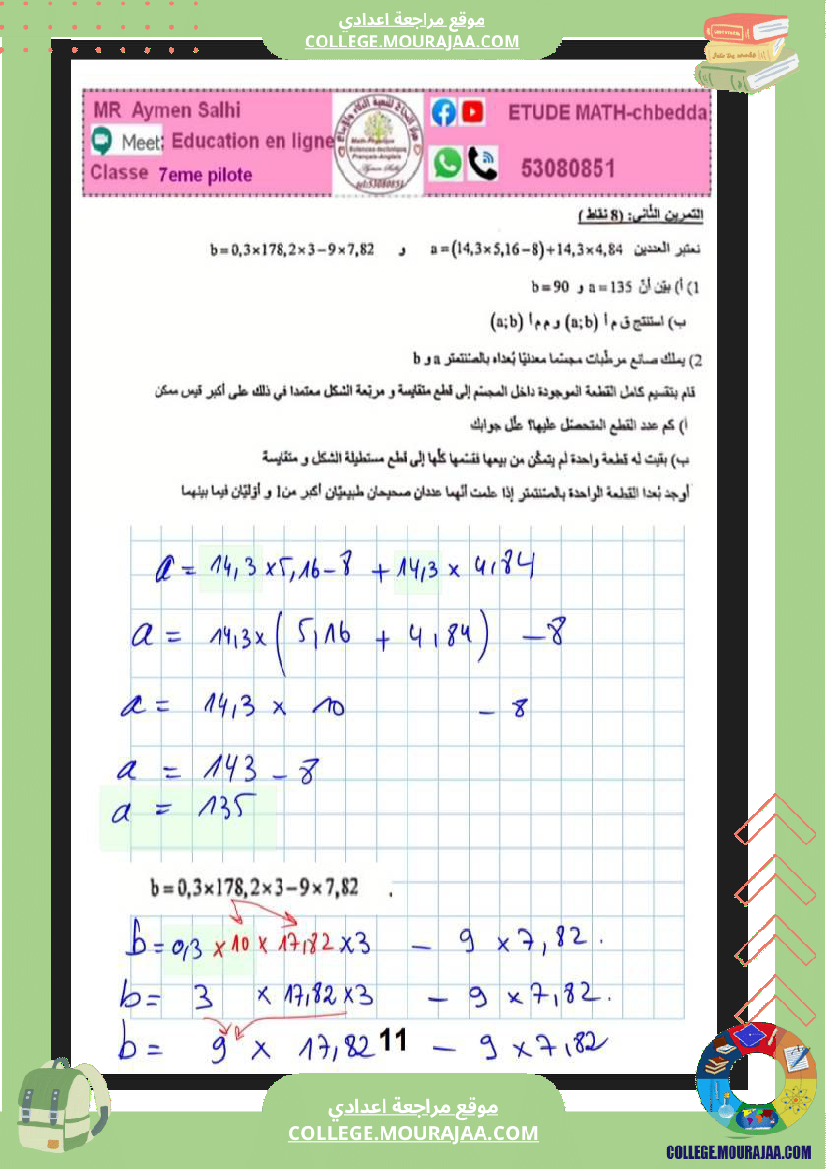 موقع مراجعة اعدادي
COLLEGE.MOURAJAA.COM
MR Aymen Salhi
Meet: Education en ligne
Classe 7eme pilote
ETUDE MATH-chbedda
53080851
التمرين الثاني: (8 نقاط)
نعتبر العددين a=(14,3×5,16−8)+14,3×4,84 و b=0,3×178,2×3−9×7,82
1) أ) بيّن أنّ a=135 و b=90
ب) استنتج ق م أ (a;b) و م م أ (a;b)
2) يملك صانع مرطّبات مجسّما معدنيّا بُعداه بالصنتمتر a و b
قام بتقسيم كامل القطعة الموجودة داخل المجسّم إلى قطع متقايسة و مربّعة الشكل معتمدا في ذلك على أكبر قيس ممكن
أ) كم عدد القطع المتحصّل عليها؟ علّل جوابك
ب) بقيت له قطعة واحدة لم يتمكّن من بيعها فقسّمها كلّها إلى قطع مستطيلة الشكل و متقايسة
أوجد بُعدا القطعة الواحدة بالصنتمتر إذا علمت أنّهما عددان صحيحان طبيعيّان أكبر من1 و أوّليّان فيما بينهما
a = 14,3 ×5,16 − 8 + 14,3 × 4,84
a = 14,3 × ( 5,16 + 4,84 ) − 8
a = 14,3 × 10 − 8
a = 143 − 8
a = 135
b=0,3×178,2×3−9×7,82 .
b = 0,3 × 10 × 17,82 × 3 − 9 × 7,82 .
b = 3 × 17,82 × 3 − 9 × 7,82 .
b = 9 × 17,82 − 9 × 7,82
11
موقع مراجعة اعدادي
COLLEGE.MOURAJAA.COM
COLLEGE.MOURAJAA.COM